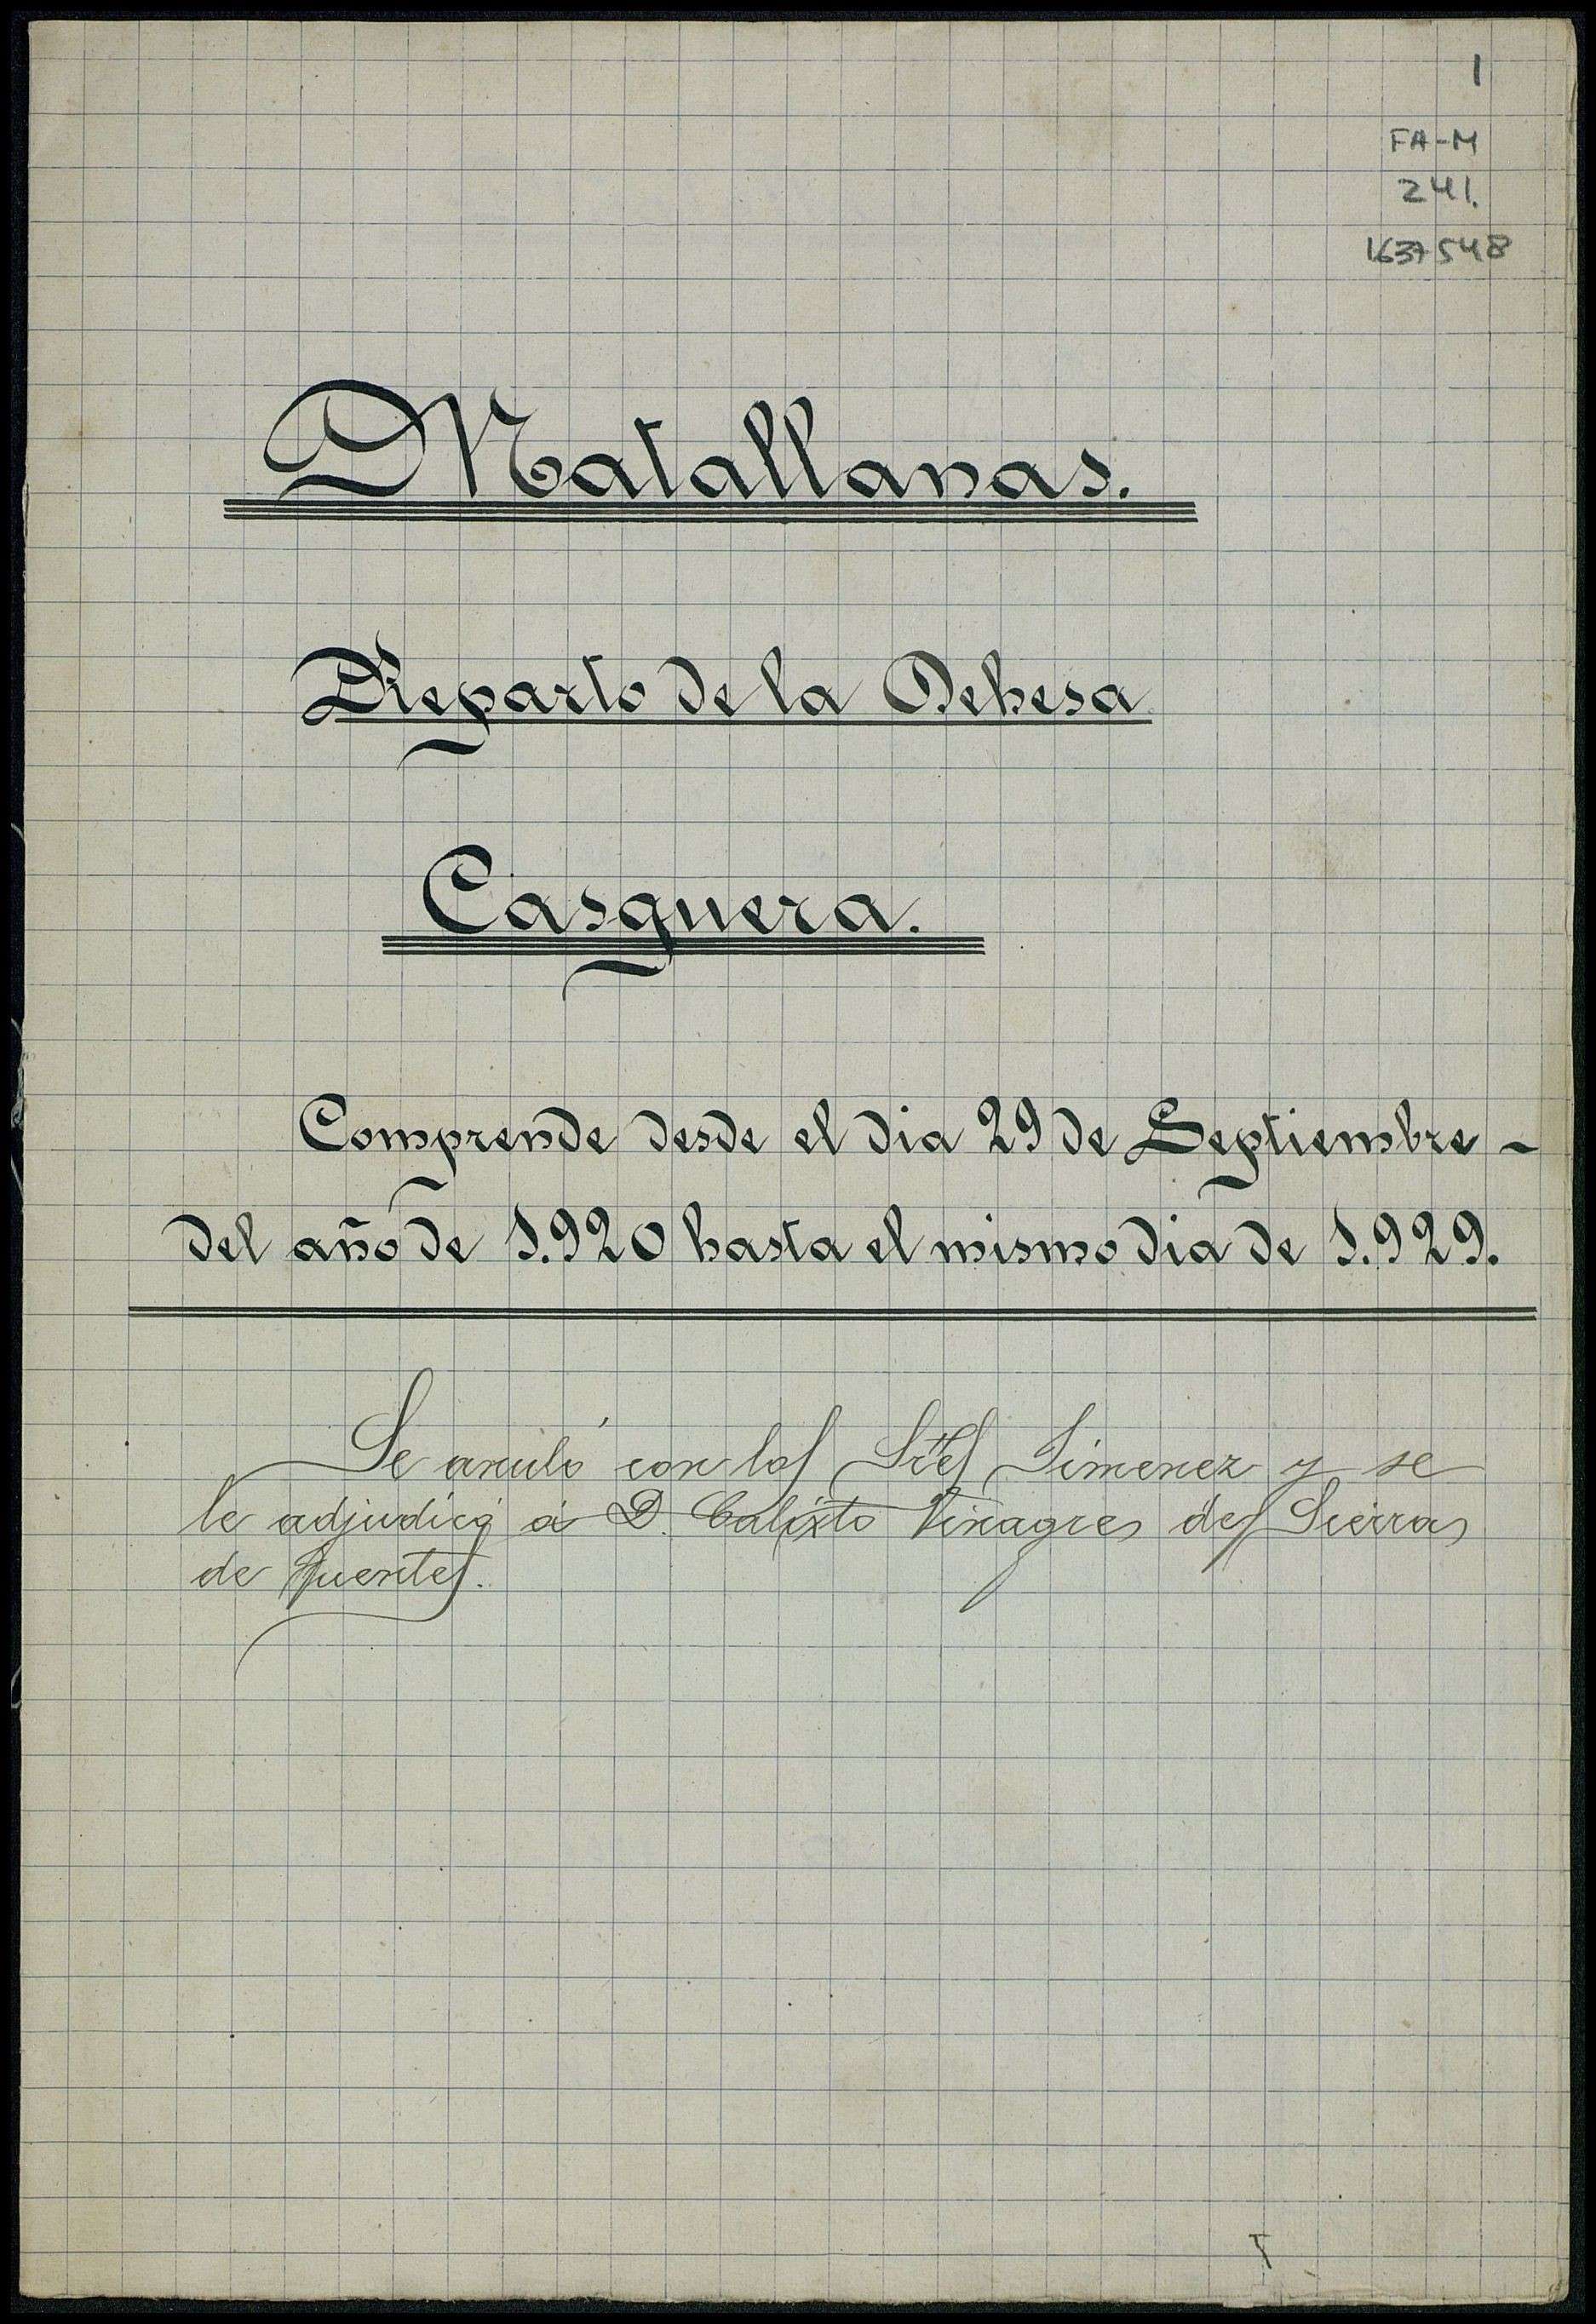 1
FA-M
241.
1637548
Matallanas.
Reparto de la Dehesa
Casquera.
Comprende desde el dia 29 de Septiembre -
del año de 1.920 hasta el mismo dia de 1.929.
Se anuló con los Sres Jimenez y se
le adjudicó á D. Calixto Vinagre de Sierra
de Fuentes.